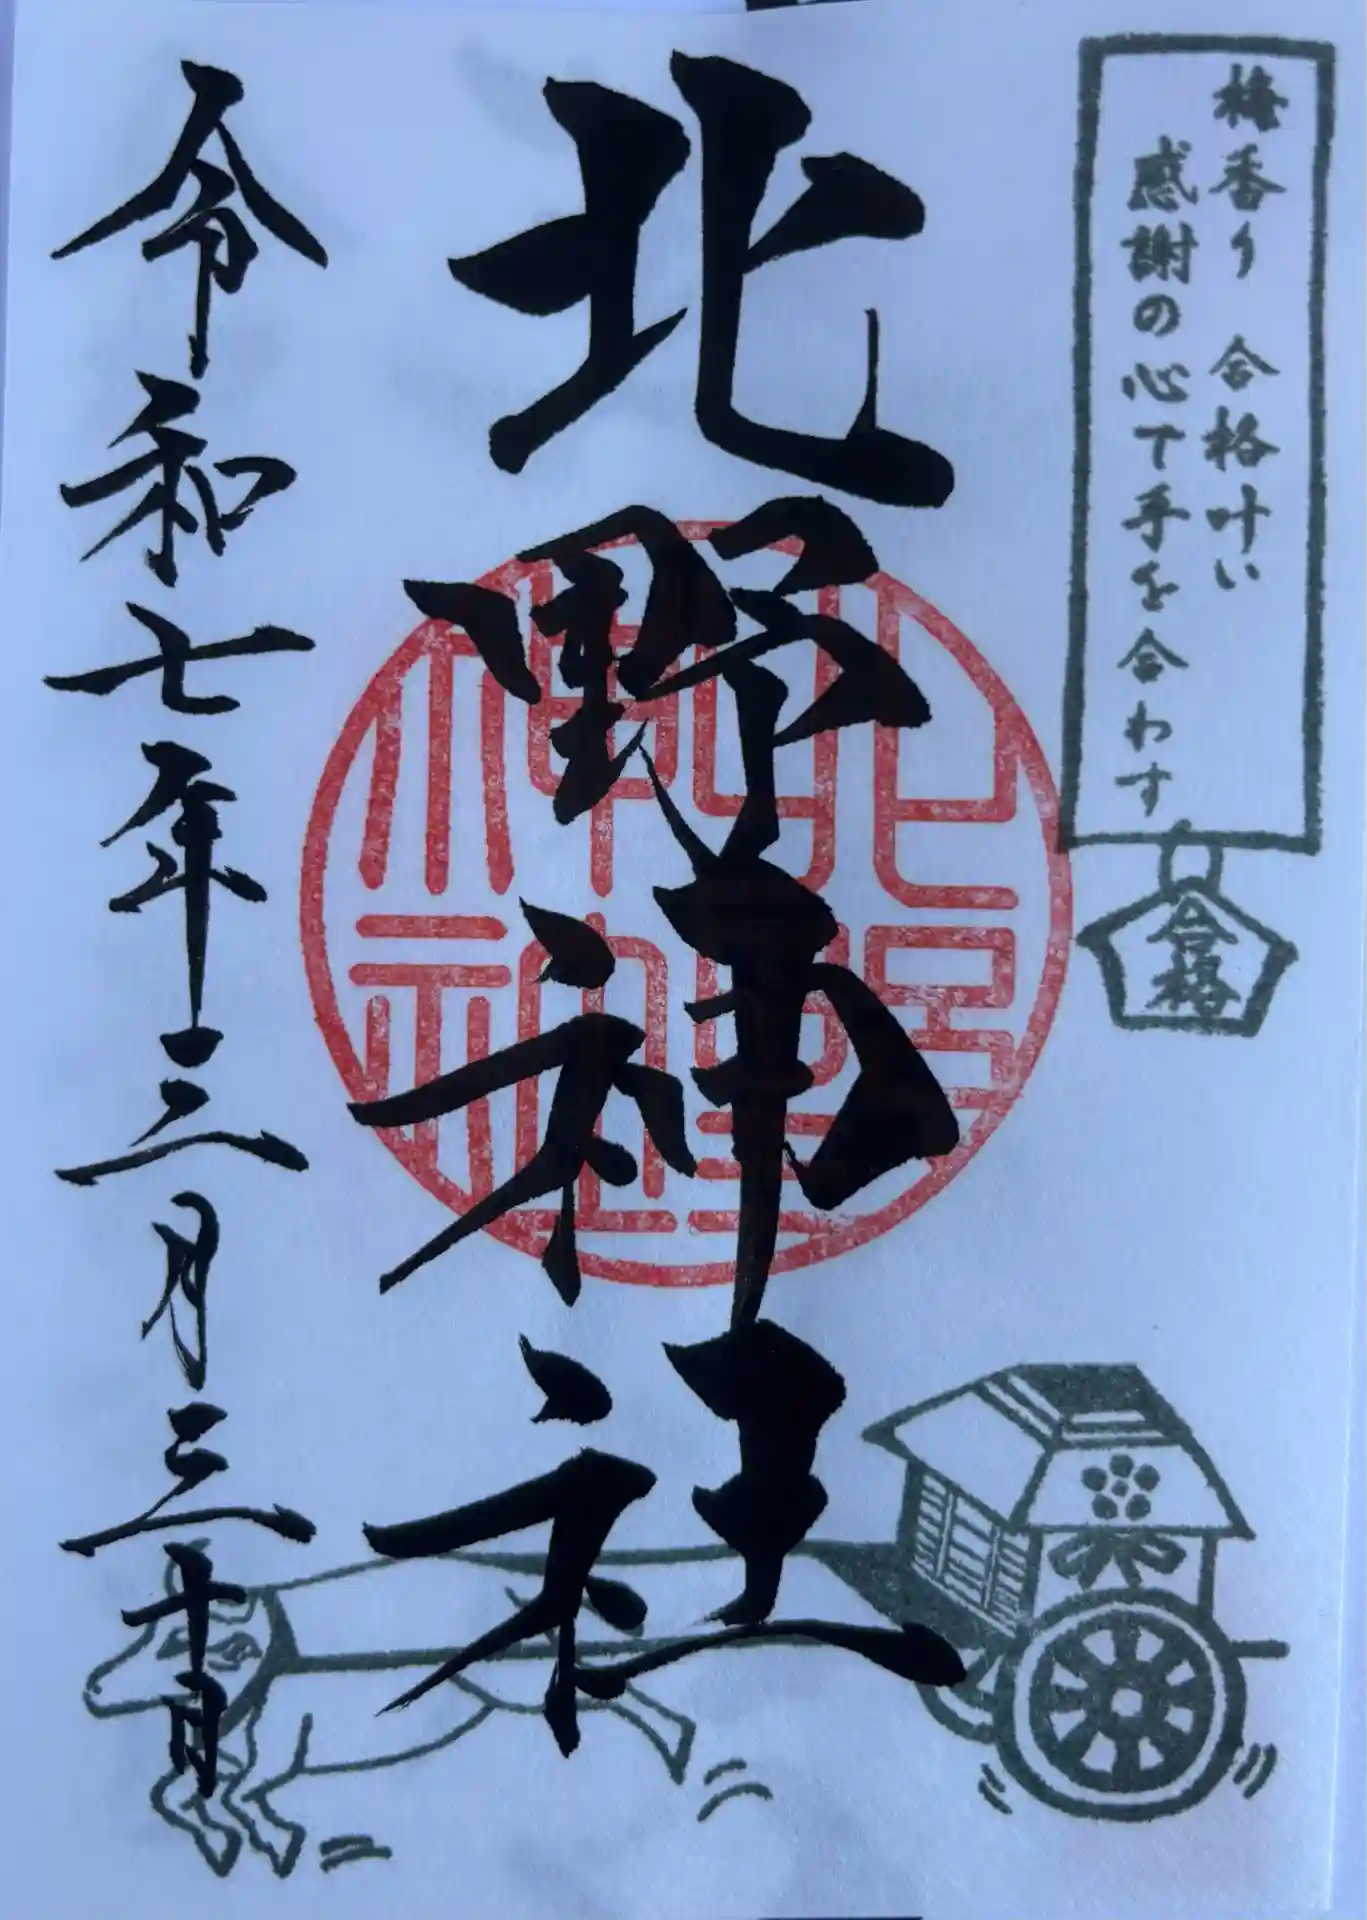 梅香り 合格叶い
感謝の心で手を合わす
合格
北野神社
北野神社神印
令和七年三月三十日